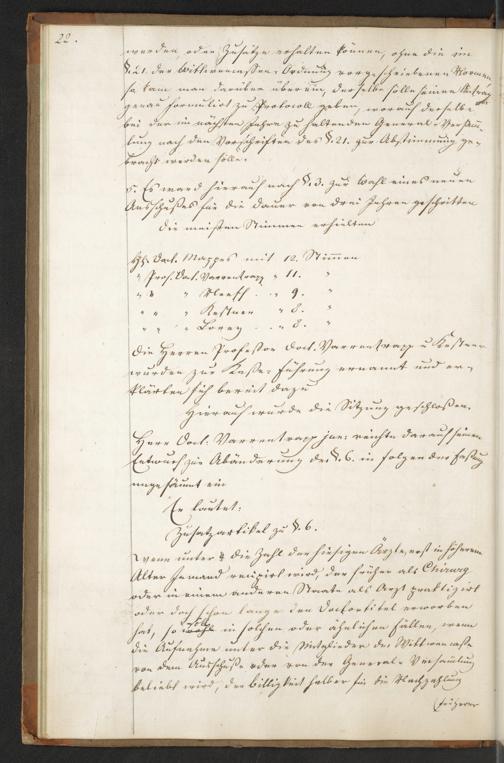 22.
werden, oder Zusätze erhalten können, ohne die im
§. 21. der Wittwenkassen-Ordnung vorgeschriebenen Normen
so kam man darüber überein, derselbe solle seinen Antrag
genau formulirt zu Protocoll geben, worauf derselbe
bei der im nächsten Jahre zu haltenden General-Versamm-
lung nach den Vorschriften des §. 21. zur Abstimmung ge-
bracht werden solle.
5. Es ward hierauf nach §. 3. zur Wahl eines neuen
Ausschußes für die Dauer von drei Jahren geschritten
Die meisten Stimmen erhielten
Hr. Doct. Mappes mit 12. Stimmen
" Prof. Doct. Varrentrapp " 11. "
" " " " 9. "
" " " Kestner " 8. "
" " " Lorey " 8. "
Die Herren Professor Doct. Varrentrapp u Kestner
wurden zur Kasse-Führung ernannt und er-
klärten sich bereit dazu
Hierauf wurde die Sitzung geschloßen.
Herr Doct. Varrentrapp jun: reichte darauf seinen
Entwurf zur Abänderung des §. 6. in folgender Fassung
ungesäumt ein
Er lautet:
Zusatzartikel zu §. 6.
Wenn unter die Zahl der hiesigen Ärzte, erst in höherem
Alter Jemand recipirt wird, der früher als Chirurg
oder in einem anderen Staate als Arzt praktizirt
oder doch schon lange den Doctortitel erworben
hat, so in solchen oder ähnlichen Fällen, wenn
die Aufnahme unter die Mitglieder der Wittwenkasse
von dem Ausschuße oder von der General-Versammlung
beliebt wird, der Billigkeit halber für die Nachzahlung